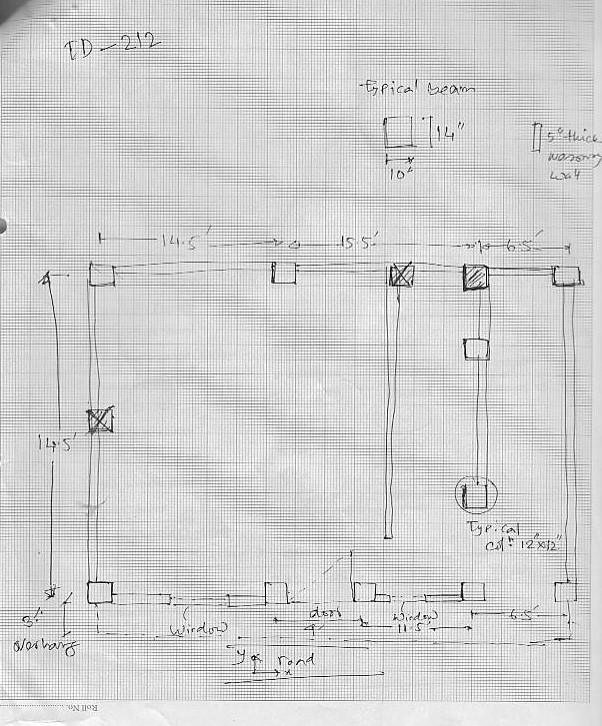 ID-212
Typical beam
14"
10"
5" thick
masonry
wall
14.5'
15.5'
6.5'
14.5'
Typical
Col. 12"x12"
3'
overhang
window
door
4'
window
11.5'
6.5'
y
x
road
Roll No.